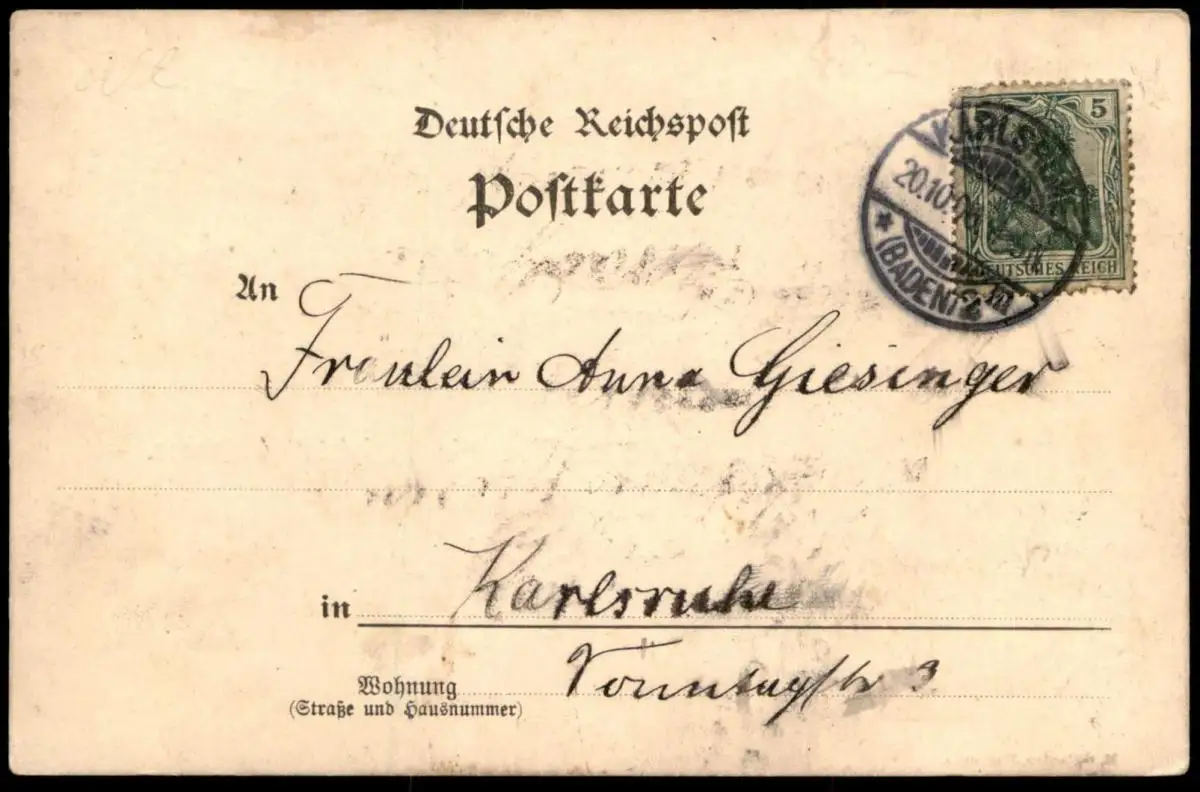 Deutsche Reichspost
Postkarte
5
DEUTSCHES REICH
20.10.
* (BADEN) 2
An
Fräulein Anna Giesinger
in Karlsruhe
Wohnung
(Straße und Hausnummer)
3